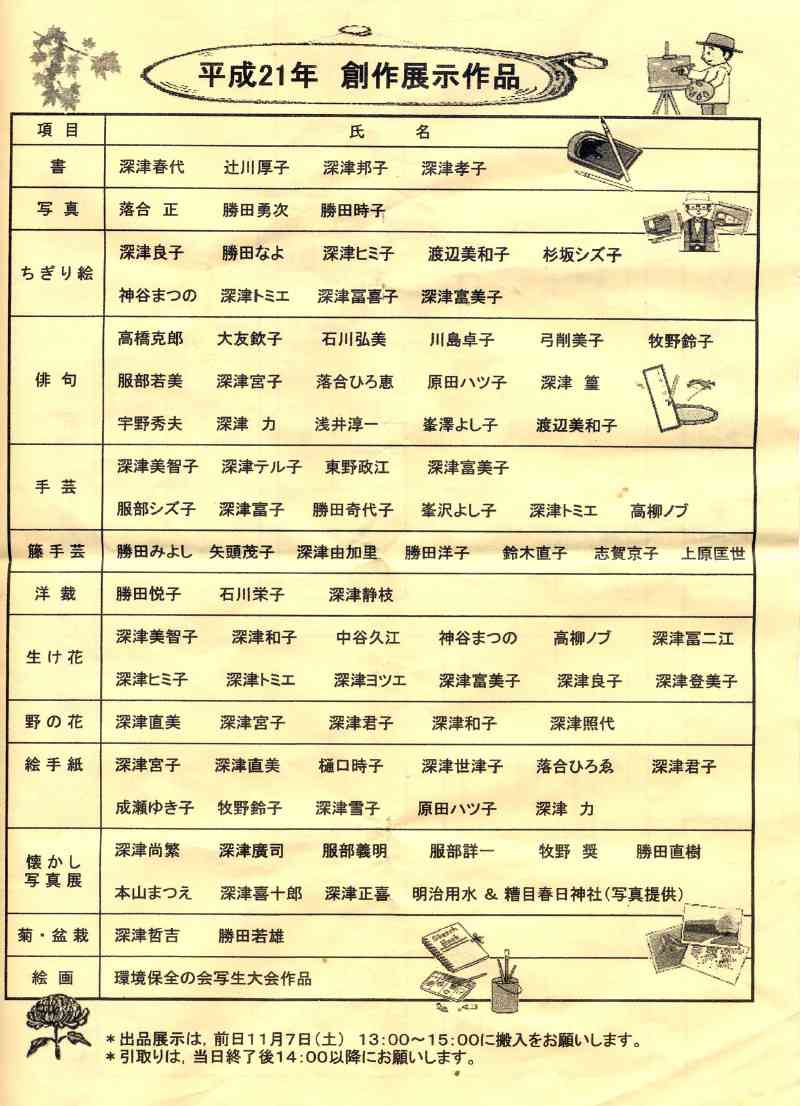 平成21年 創作展示作品
項目 氏 名
書 深津春代 辻川厚子 深津邦子 深津孝子
写真 落合 正 勝田勇次 勝田時子
ちぎり絵 深津良子 勝田なよ 深津ヒミ子 渡辺美和子 杉坂シズ子
神谷まつの 深津トミエ 深津冨喜子 深津富美子
俳句 高橋克郎 大友欽子 石川弘美 川島卓子 弓削美子 牧野鈴子
服部若美 深津宮子 落合ひろ恵 原田ハツ子 深津 篁
宇野秀夫 深津 力 浅井淳一 峯澤よし子 渡辺美和子
手芸 深津美智子 深津テル子 東野政江 深津富美子
服部シズ子 深津富子 勝田奇代子 峯沢よし子 深津トミエ 高柳ノブ
籐手芸 勝田みよし 矢頭茂子 深津由加里 勝田洋子 鈴木直子 志賀京子 上原匡世
洋裁 勝田悦子 石川栄子 深津静枝
生け花 深津美智子 深津和子 中谷久江 神谷まつの 高柳ノブ 深津冨二江
深津ヒミ子 深津トミエ 深津ヨツエ 深津富美子 深津良子 深津登美子
野の花 深津直美 深津宮子 深津君子 深津和子 深津照代
絵手紙 深津宮子 深津直美 樋口時子 深津世津子 落合ひろゑ 深津君子
成瀬ゆき子 牧野鈴子 深津雪子 原田ハツ子 深津 力
懐かし写真展 深津尚繁 深津廣司 服部義明 服部詳一 牧野 奨 勝田直樹
本山まつえ 深津喜十郎 深津正喜 明治用水 & 糟目春日神社(写真提供)
菊・盆栽 深津哲吉 勝田若雄
Sketch Book
絵画 環境保全の会写生大会作品
*出品展示は,前日11月7日(土) 13:00～15:00に搬入をお願いします。
*引取りは,当日終了後14:00以降にお願いします。